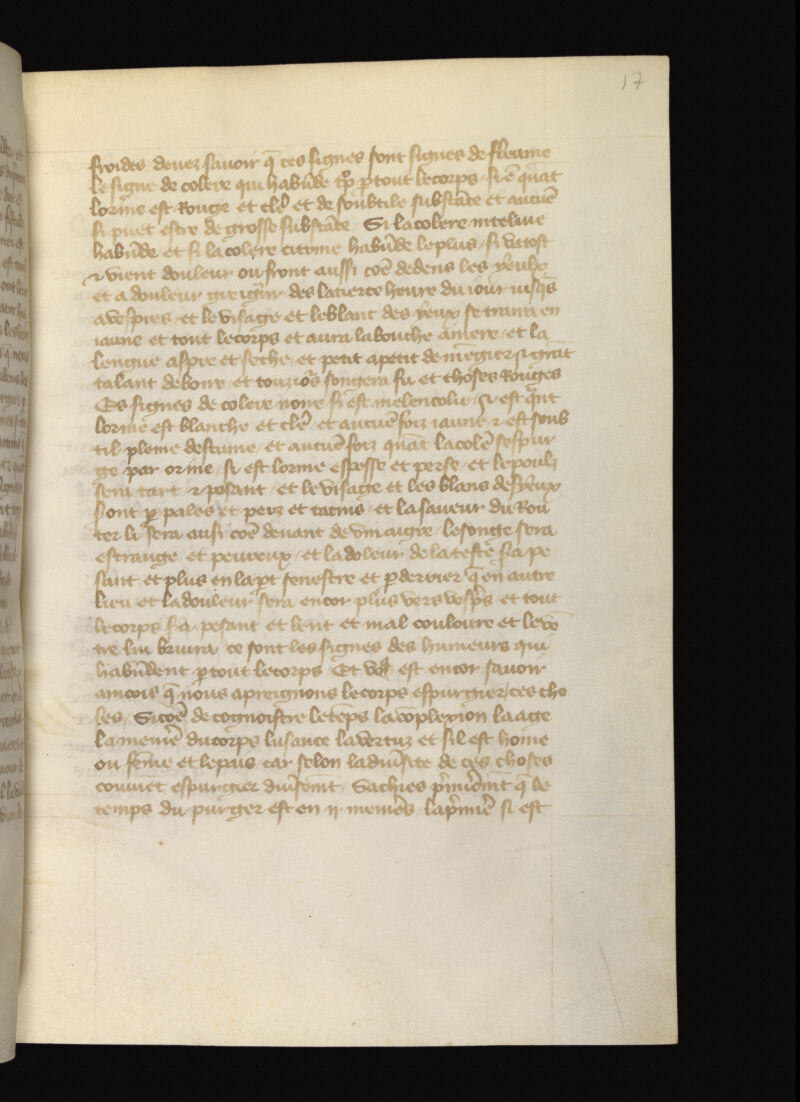 17
froides devez savoir q̄ ces signes sont signes de fleume
le signe de colere qui habūde ꝑ tout le corps si ē quāt
lorine est Rouge et cleͬ et de soubtile substāce et aucūē
si puet estre de grosse substāce Si la colere
habūde et si la colere citrine habūde le plus si
⁊ vient douleur ou front aussi cōe dedens les yeulx
et a douleur greigͥur des la tierce heure du iour iusqͥs
a vespres et le visage et le blanc des yeux se traira en
iaune et tout le corps et aura la bouche amere et la
lengue aspre et seche et petit apetit de mēgier ⁊ grāt
talant de boire et touziōͬs songera fu et choses Rouges
Es signes de colere noire si est melencolie si est qͣnt
lorine est blanche et cleͬ et aucūē foiz iaune ⁊ est soub
til pleine descume et aucūē foiz quāt la colēͬ sespur
ge par orine si est lorine espesse et perse et le poulz
sera tart ⁊ pesant et le visage et les blans des yeux
sont ꝑ pales et pers et et la saveur du Rou
ter li sera ausi cōe devant de vin aigre le songe sera
estrange et peureux et la doleur de la teste sͥa pe
sant et plus en la ꝑt senestre et ꝑ derrier q̄ en autre
lieu et la douleur sera encor plus vers vespͬs et tout
le corps sͥa pesant et lent et mal couloure et le vē
tre lui bruira ce sont les signes des humeurs qui
habūdent ꝑ tout le corps Et est encor savoir
aincois q̄ nous apreignons le corps espurgier ces cho
ses Si cōe de cognoistre le tēps la cōplexion la age
la meniēͬ du corps lusance la vertuz et sil est home
ou fēme et le pais car selon la divͥsite de ces choses
couviēt espurgier divͥsemt Sachies pͥmieͬmēt q̄ le
temps du purger est en ij menieͬs la pͥmieͬ si est